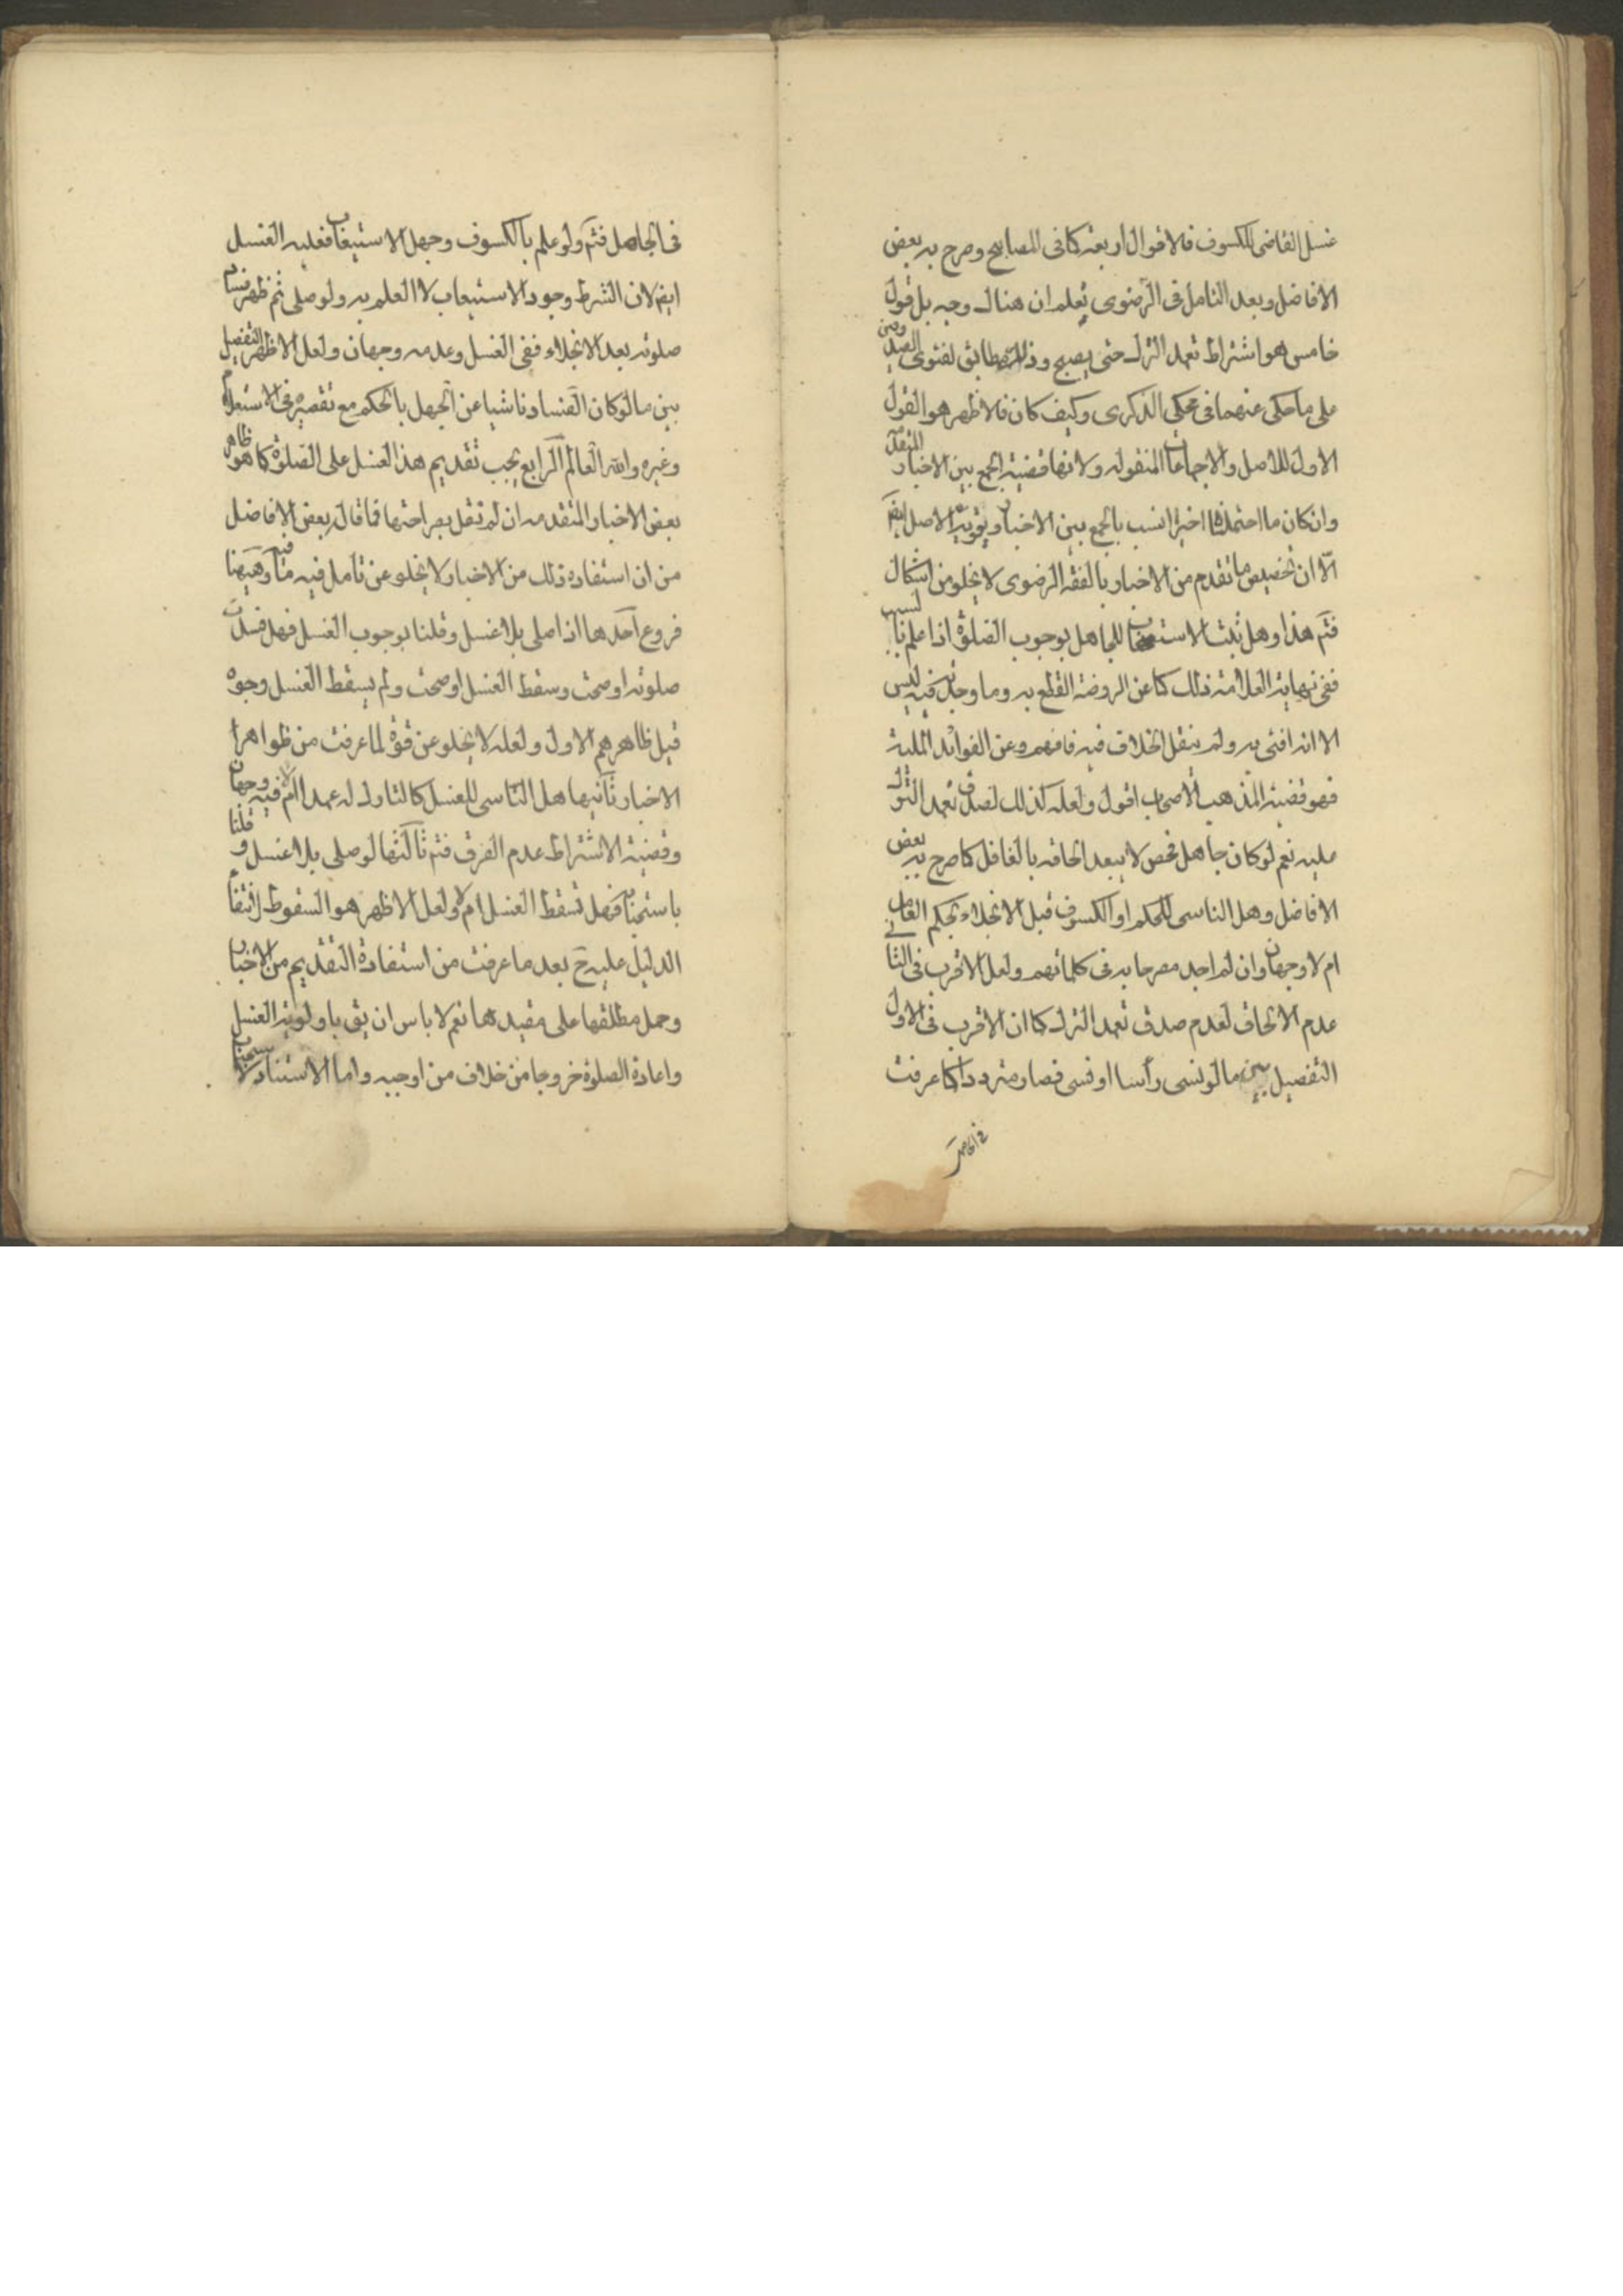 غسل القاضى للكسوف فالاقوال اربعة كما فى المصابيح وصرح به بعض
الافاضل وبعد التامل فى الرضوى تعلم ان هناك وجه بل قول
خامس هو اشتراط تعمد الترك حتى يصبح وذلك مطابق لفتوى الصدوقين
على ما حكى عنهما فى محكى الذكرى وكيف كان فالاظهر هو القول
الاول للاصل والاجماعات المنقوله ولانها قضية الجمع بين الاخبار المتقدمة
وان كان ما احتملناه اخيرا انسب بالجمع بين الاخبار ويؤيده الاصل ايضا
الّا ان تخصيص ما تقدم من الاخبار بالفقه الرضوى لا يخلو من اشكال
فتم هذا وهل يثبت الاستحباب للجاهل بوجوب الصلوة اذا علم بالسبب
ففى نهاية العلامة ذلك كما عن الروضة القطع به وما وجدته فيه ليس
الا انه افتى به ولم ينقل الخلاف فيه فافهم وعن الفوائد الملية
فهو قضية المذهب الاصحاب اقول ولعله كذلك لصدق تعمد الترك
عليه نعم لو كان جاهل محض لا يبعد الحاقه بالغافل كما صرح به بعض
الافاضل وهل الناسى للحكم او الكسوف قبل الانجلاء بحكم العامد
ام لا وجهان وان لم اجد مصرحا به فى كلماتهم ولعل الاقرب فى الثانى
عدم الالحاق لعدم صدق تعمد الترك كما ان الاقرب فى الاول
التفصيل بين ما لو نسى رأسا او نسى فصار مترددا كما عرفت
فى الجاهل
فى الجاهل فتم ولو علم بالكسوف وجهل الاستيعاب فعليه الغسل
ايضا لان الشرط وجود الاستيعاب لا العلم به ولو صلى ثم ظهر فساد
صلوته بعد الانجلاء ففى الغسل وعدمه وجهان ولعل الاظهر التفصيل
بين ما لو كان الفساد ناشيا عن الجهل بالحكم مع تقصيره فى الاستعلام
وغيره والله العالم الرابع يجب تقديم هذا الغسل على الصلوة كما هو ظاهر
بعض الاخبار المتقدمه ان لم نقل بصراحتها فما قال بعض الافاضل
من ان استفادة ذلك من الاخبار لا يخلو عن تأمل فيه ما فيه وهيهنا
فروع احدها اذا صلى بلا غسل وقلنا بوجوب الغسل فهل فسدت
صلوته او صحت وسقط الغسل او صحت ولم يسقط الغسل وجوه
قيل ظاهرهم الاول ولعله لا يخلو عن قوة لما عرفت من ظواهر
الاخبار ثانيها هل الناسى للغسل كالتارك له عمدا ام لا فيه وجهان
وقضية الاشتراط عدم الفرق فتم ثالثها لو صلى بلا غسل وقلنا
باستحبابه فهل تسقط الغسل ام لا ولعل الاظهر هو السقوط لانتفاء
الدليل عليه ح بعد ما عرفت من استفادة التقديم من الاخبار
وحمل مطلقها على مقيدها نعم لا باس ان يق باولوية الغسل
واعادة الصلوة خروجا من خلاف من اوجبه واما الاستناد